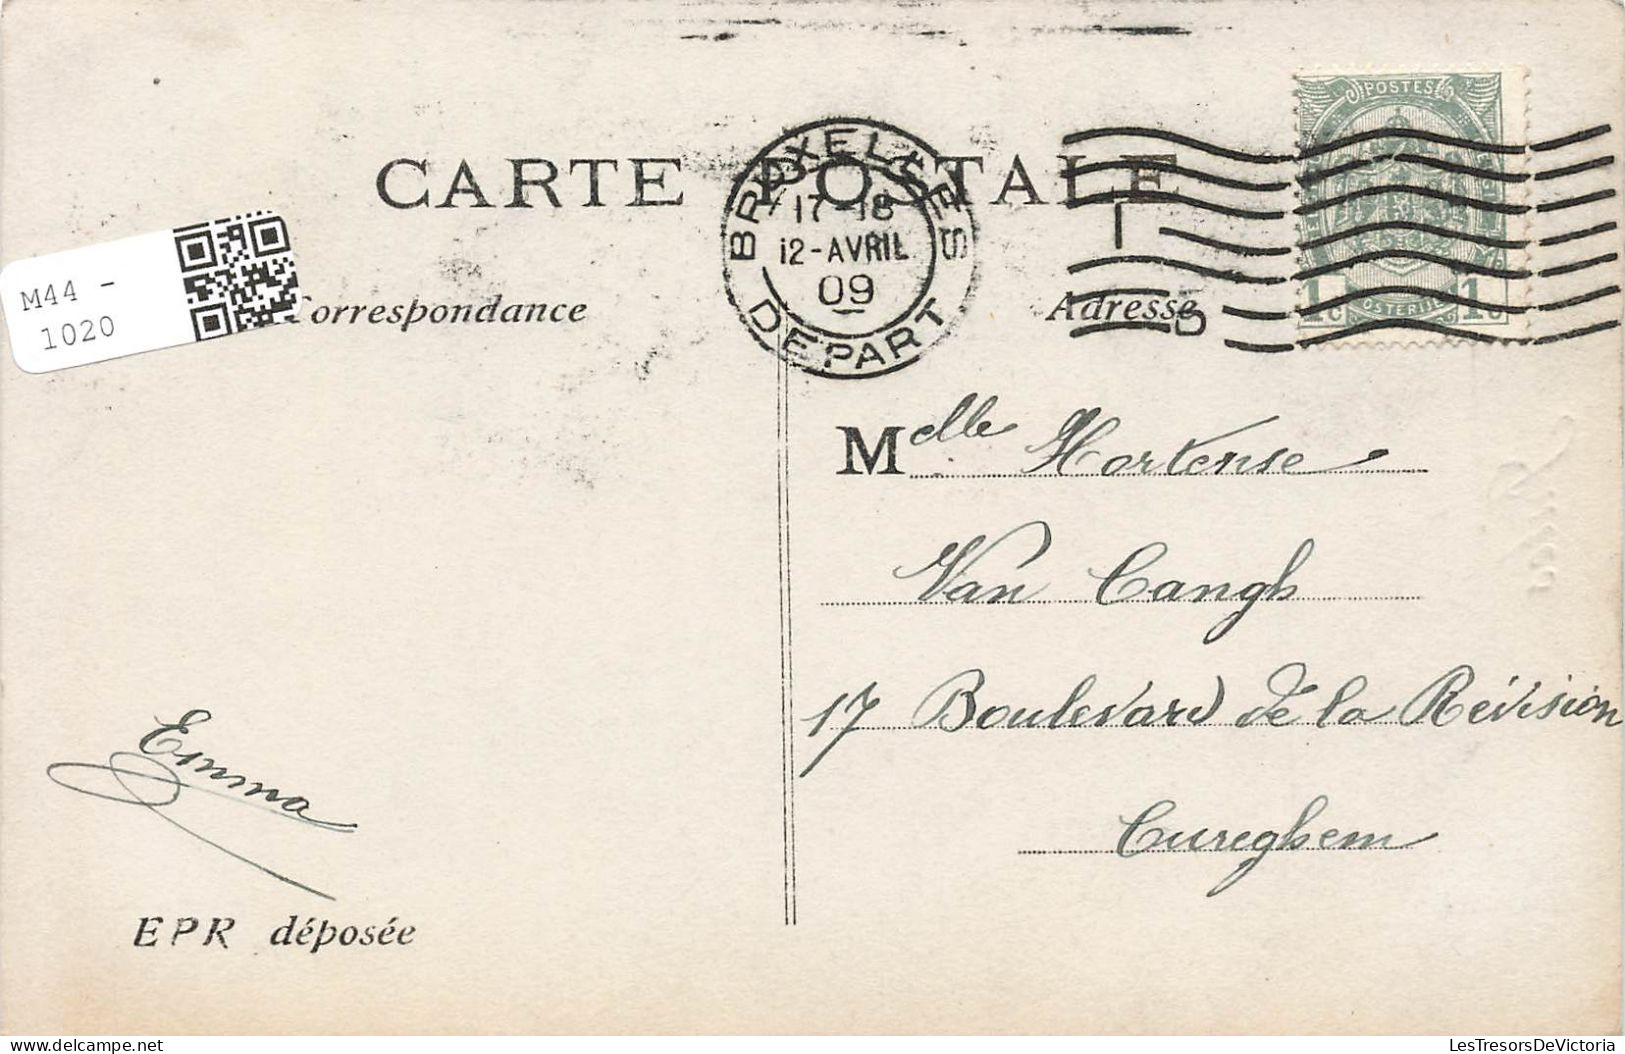 CARTE POSTALE
BRUXELLES
17-18
12-AVRIL
09
DEPART
POSTES
1c 1c
M44 -
1020
Correspondance
Adresse
Melle Hortense
Van Cangh
17 Boulevard de la Révision
Cureghem
Emma
EPR déposée
delcampe.net
LesTresorsDeVictoria